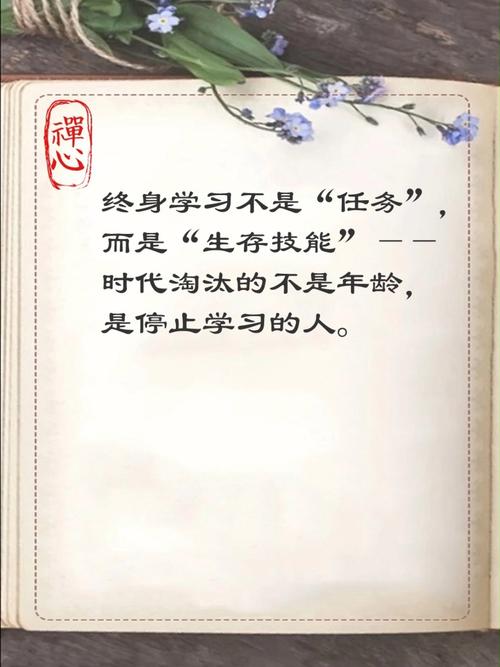 禪心
终身学习不是“任务”，
而是“生存技能”——
时代淘汰的不是年龄，
是停止学习的人。